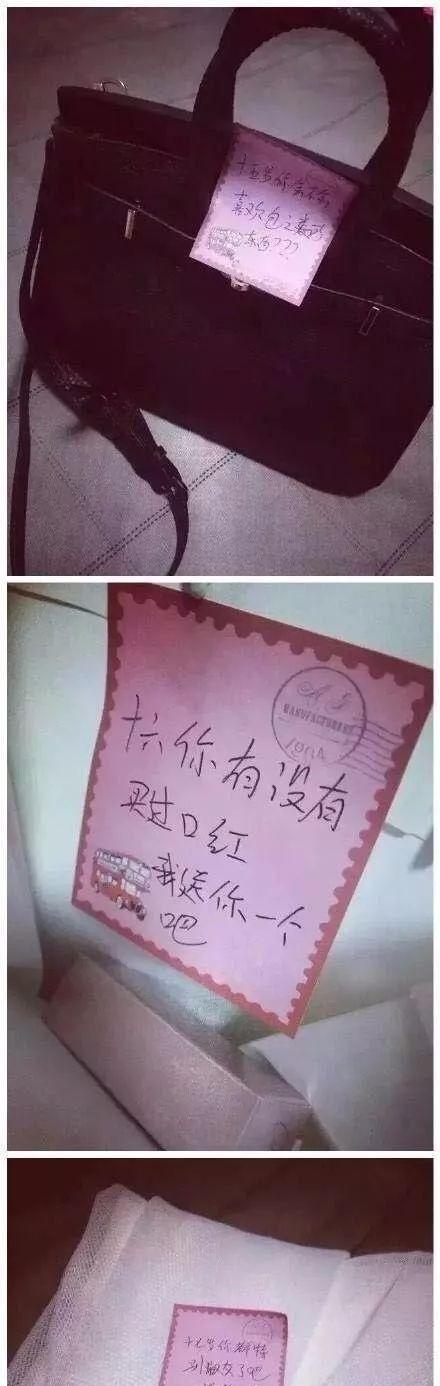 十五岁你会不会
喜欢包之类的
东西???
MANUFACTURERS
1904
十六你有没有
买过口红
我送你一个
吧
十七岁你都特
别淑女了吧